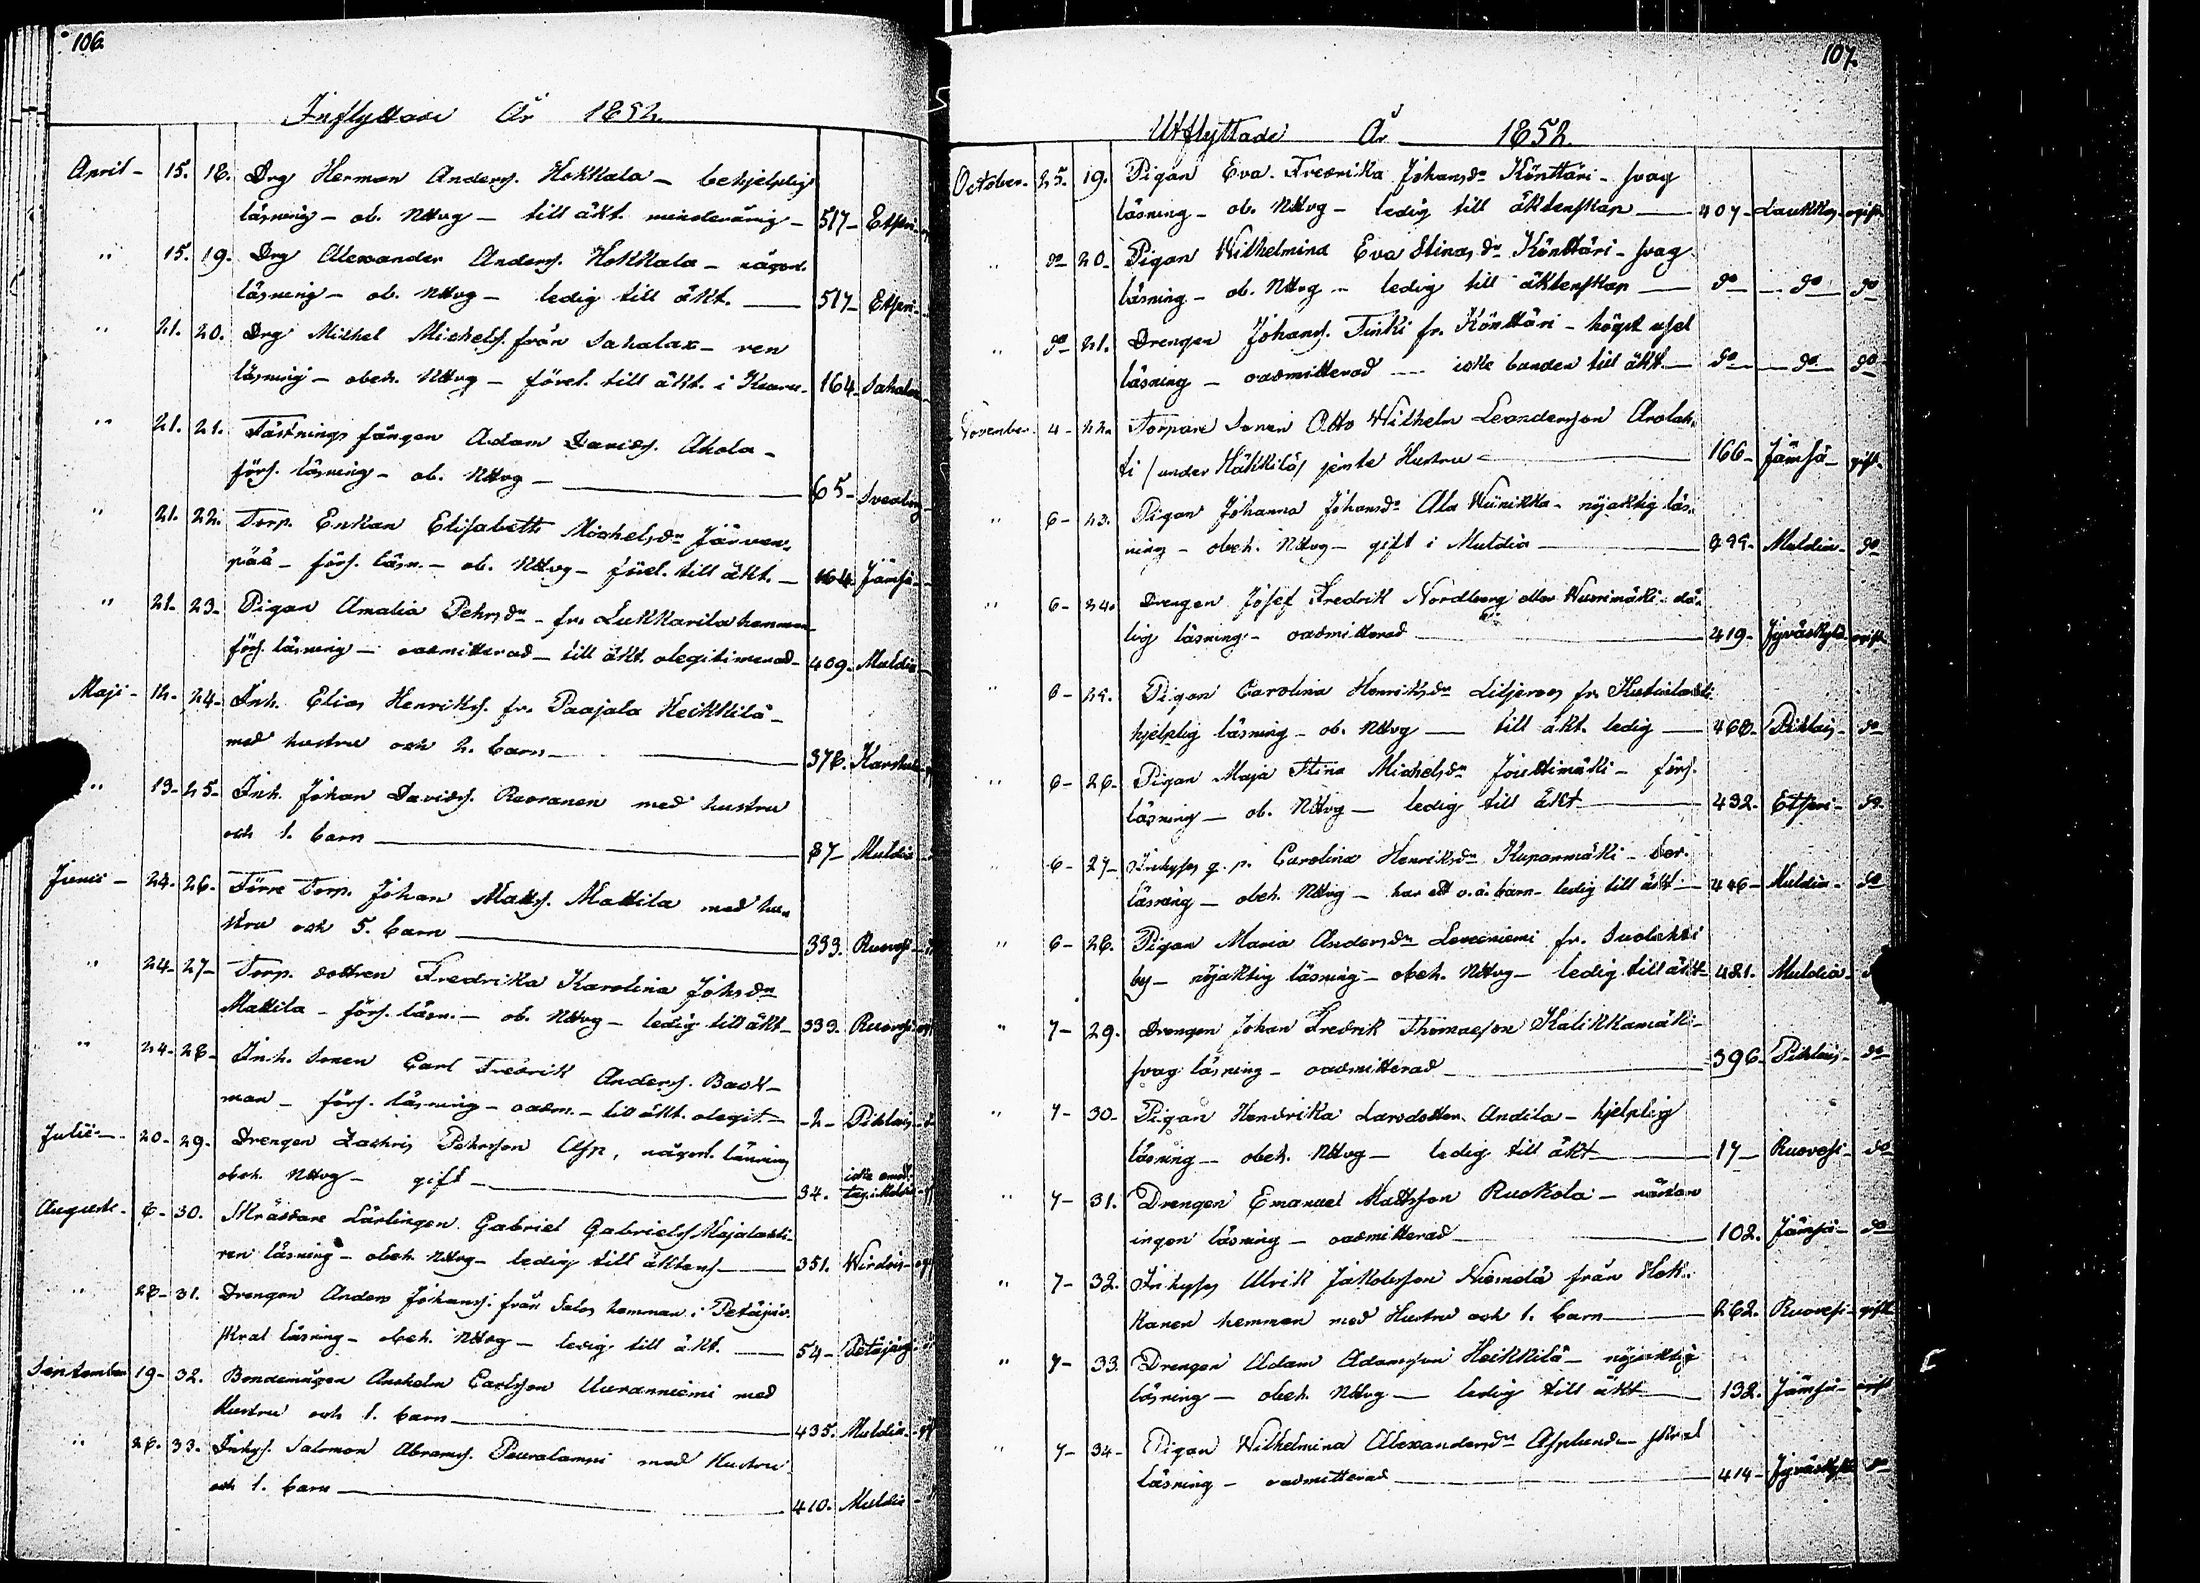 106.
Inflyttade År 1852.
April - 15. 18. Drg Herman Anders. Hokkala - behjelplig
läsning - ob. Nttvg - till äkt. minderårig - 517 - Etseri -
" 15. 19. Drg Alexander Anders. Hokkala - någorl.
läsning - ob. Nttvg - ledig till äkt. - 517 - Etseri -
" 21. 20. Drg Michel Michels. från Sahalax - ren
läsning - obeh. Nttvg - förel. till äkt. i Keuru - 164 Sahalax
" 21. 21. Fästnings fången Adam Davids. Ahola -
förs. läsning - ob. Nttvg - 65 -
" 21. 22. Torp. Enkan Elisabeth Michelsdr Järven-
pää - förs. läsn. - ob. Nttvg - förel. till äkt. - 164 Jämsä -
" 21. 23. Pigan Amalia Pehrsdr - fr. Lukkarila hemman
förs. läsning - oadmitterad - till äkt. olegitimerad - 409. Muldia
Maji - 12. 24. Inh. Elias Henrikss. fr. Paajala Heikkilä -
med hustru och 2. barn - 378. Karstula
" 13. 25. Inh. Johan Davids. Rooranen med hustru
och 1. barn - 87 - Muldia
Junii - 24. 26. Förre Torp. Johan Matts. Mattila med hu-
stru och 5. barn - 333. Ruovesi
" 24. 27. Torp. dottren Fredrika Karolina Johsdr
Mattila - förs. läsn. - ob. Nttvg - ledig till äkt - 333. Ruovesi
" 24. 28. Inh. Sonen Carl Fredrik Anders. Back-
man - förs. läsning - oadm. - till äkt. olegit. - 2 - Pihlais
Julii - 20. 29. Drengen Zachris Pehrsson Asp, någorl. läsning
obeh. Nttvg - gift - 34. icke emot tag. i Muldia
Augusti - 6. 30. Skräddare Lärlingen Gabriel Gabrielss. Majalahti -
ren läsning - obeh. Nttvg - ledig till äktens. - 351. Wirdois
" 28. 31. Drengen Anders Johans. från Salos hemman i Petäjäv.
skral läsning - obeh. Nttvg - ledig till äkt. - 54 - Petäjäv.
September 19 - 32. Bondemågen Anshelm Carlsson Uuranniemi med
Hustru och 1. barn - 435. Muldia
" 26. 33. Inhys. Salomon Abrams. Peuralamni med Hustru
och 1. barn - 410. Muldia
107.
Utflyttade År 1852.
October - 25. 19. Pigan Eva Fredrika Johansdr Könttäri - svag
läsning - ob. Nttvg - ledig till äktenskap - 407 - Laukkas - ogift
" do 20. Pigan Wilhelmina Eva Stinas dr Könttäri - svag
läsning - ob. Nttvg - ledig till äktenskap - do - do - do
" do 21. Drengen Johans. Tinki fr. Könttäri - högst usel
läsning - oadmitterad - icke bunden till äkt - do - do - do
November 4 - 22. Torpare Sonen Otto Wilhelm Leandersson Arolah-
ti / under Häkkilä / jemte Hustru - 166 - Jämsä - gift
" 6 - 23. Pigan Johanna Johansdr Ala Wiinikka - nöjaktig läs-
ning - obeh. Nttvg - gift i Muldia - 399. Muldia - do
" 6 - 24. Drengen Josef Fredrik Nordberg eller Wuorimäki - då-
lig läsning - oadmitterad - 419 - Jyväskylä - ogift
" 6 - 25. Pigan Carolina Henriksdr Liljeroos fr.
hjelplig läsning - ob. Nttvg - till äkt. ledig - 468 - Pihlais - do
" 6 - 26. Pigan Maja Stina Michelsdr Jouttimäki - förs.
läsning - ob. Nttvg - ledig till äkt - 432 - Etseri - do
" 6 - 27 - Inhyses q. p. Carolina Henriksdr Kuparmäki - för.
läsning - obeh. Nttvg - har ett o. ä. barn - ledig till äkt - 446 - Muldia - do
" 6 - 28. Pigan Maria Andersdr Leveniemi fr. Suolahti
by - nöjaktig läsning - obeh. Nttvg - ledig till äkt - 481. Muldia -
" 7 - 29. Drengen Johan Fredrik Thomasson Kalikkamäki -
svag läsning - oadmitterad - 396. Pihlais - do
" 7 - 30. Pigan Hendrika Larsdotter Andila - hjelplig
läsning - obeh. Nttvg - ledig till äkt - 17 - Ruovesi - do
" 7 - 31. Drengen Emanuel Mattsson Ruokola - nästan
ingen läsning - oadmitterad - 102. Jämsä - do
" 7 - 32. Inhyses Ulrik Jakobsson Niemelä från Hok-
kanen hemman med Hustru och 1. barn - 262. Ruovesi - gift
" 7 - 33. Drengen Adam Adamsson Heikkilä - nöjaktig
läsning - obeh. Nttvg - ledig till äkt - 132. Jämsä - ogift
" 7 - 34 - Pigan Wilhelmina Alexandersdr Asplund - skral
läsning - oadmitterad - 414 - Jyväskylä do